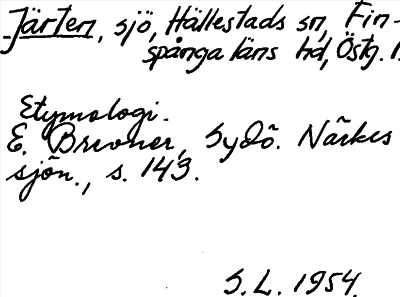 Järten, sjö, Hällestads sn, Fin-
spånga läns hd, Östg. l.
Etymologi.
E. Brevner, Sydö. Närkes
sjön., s. 143.
S.L. 1954.